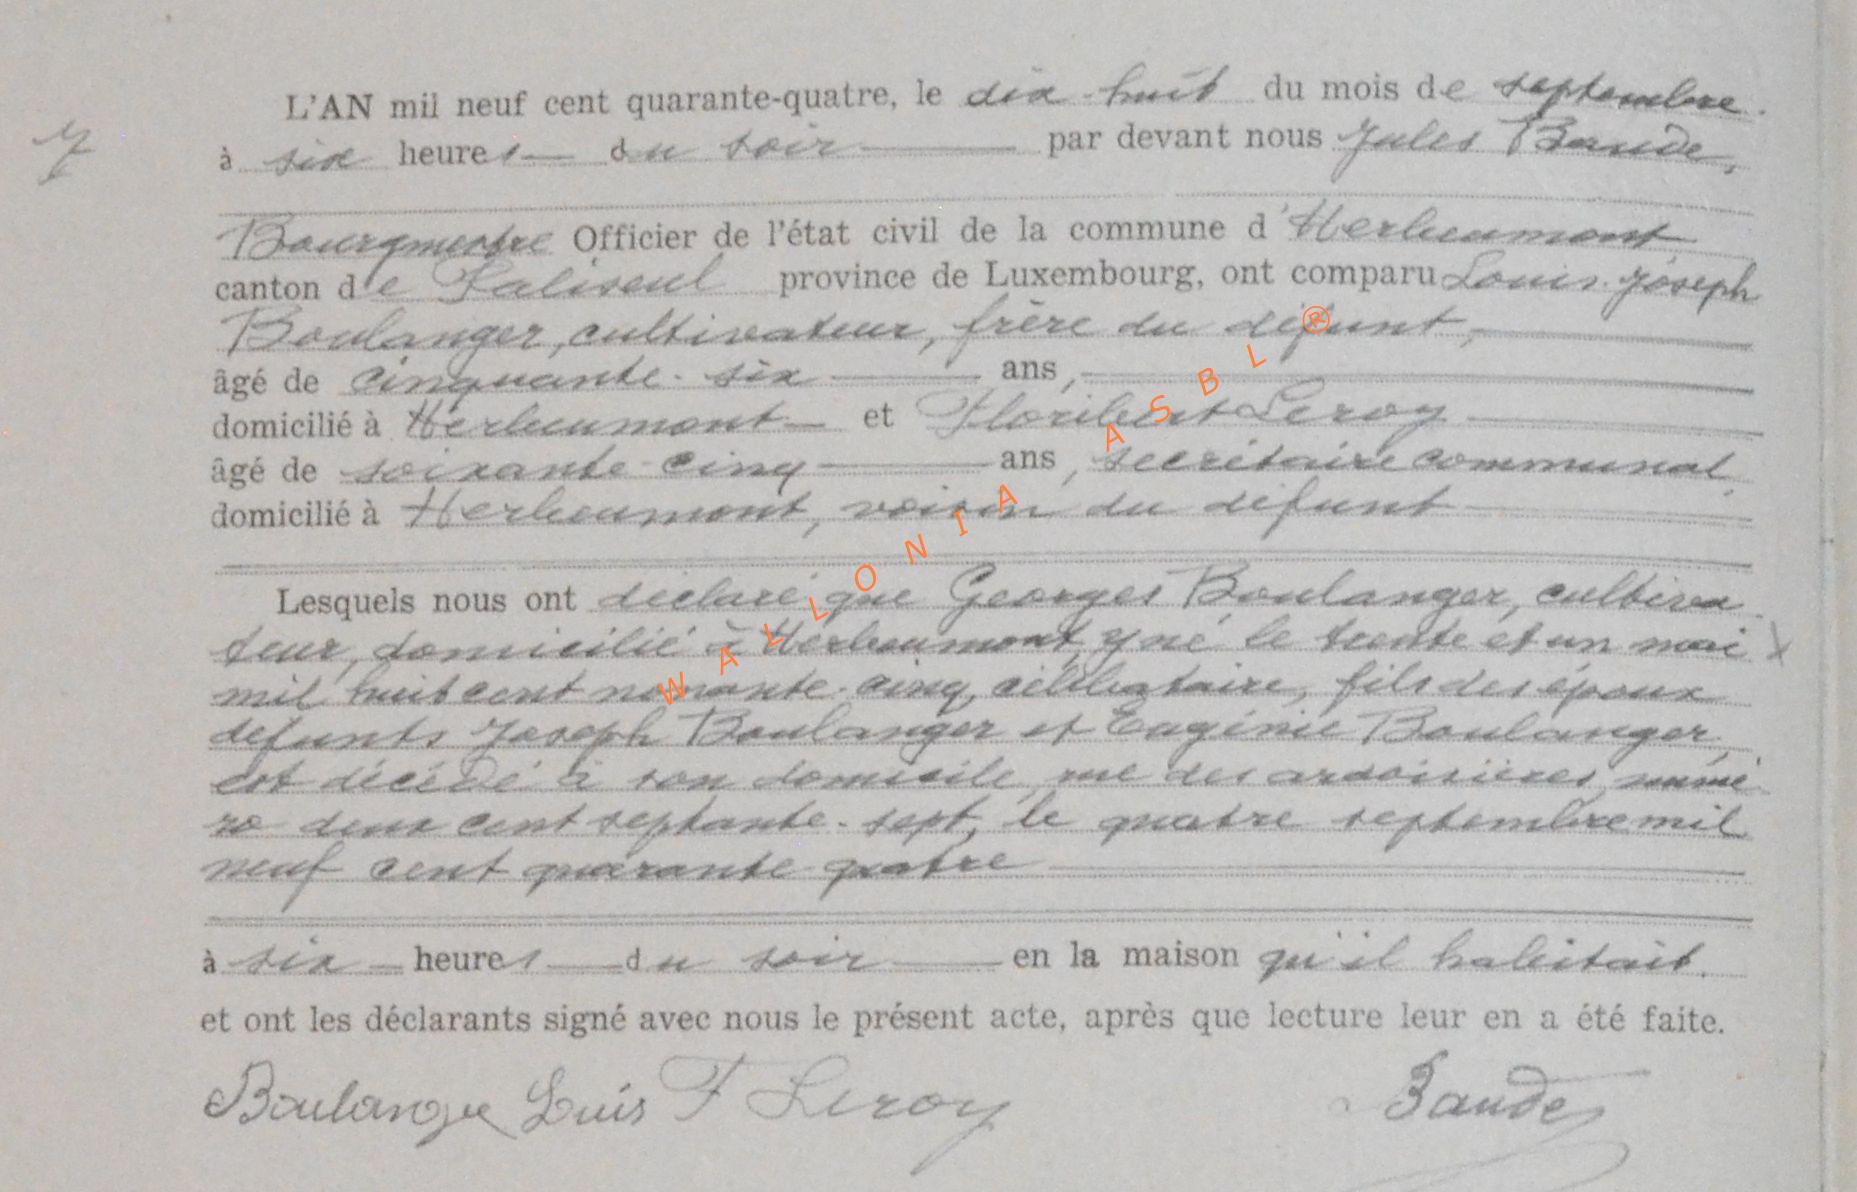 L'AN mil neuf cent quarante-quatre, le dix-huit du mois de septembre
7
à six heures du soir par devant nous Jules Baude,
Bourgmestre Officier de l'état civil de la commune d'Herbeumont
canton de Paliseul province de Luxembourg, ont comparu Louis Joseph
Boulanger, cultivateur, frère du défunt,
âgé de cinquante-six ans,
domicilié à Herbeumont et Floribert Leroy
âgé de soixante-cinq ans, secrétaire communal,
domicilié à Herbeumont, voisin du défunt
Lesquels nous ont déclaré que Georges Boulanger, cultiva
teur, domicilié à Herbeumont, y né le trente et un mai
mil huit cent nonante-cinq, célibataire, fils des époux
défunts Joseph Boulanger et Eugénie Boulanger,
est décédé à son domicile, rue des ardoisières, numé
ro deux cent septante-sept, le quatre septembre mil
neuf cent quarante-quatre
à six heures du soir en la maison qu'il habitait.
et ont les déclarants signé avec nous le présent acte, après que lecture leur en a été faite.
Boulanger Louis F Leroy Baude
WALLONIA ASBL ®